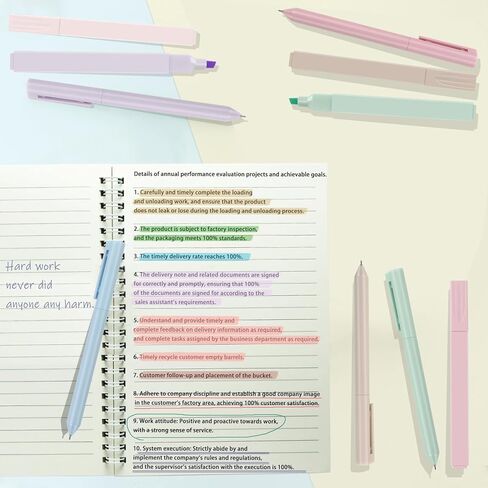 Details of annual performance evaluation projects and achievable goals.
1. Carefully and timely complete the loading
and unloading work, and ensure that the product
does not leak or lose during the loading and unloading process.
2. The product is subject to factory inspection,
and the packaging meets 100% standards.
3. The timely delivery rate reaches 100%.
4. The delivery note and related documents are signed
for correctly and promptly, ensuring that 100%
of the documents are signed for according to the
sales assistant's requirements.
5. Understand and provide timely and
complete feedback on delivery information as required,
and complete tasks assigned by the business department as required.
6. Timely recycle customer empty barrels.
7. Customer follow-up and placement of the bucket.
8. Adhere to company discipline and establish a good company image
in the customer's factory area, achieving 100% customer satisfaction.
9. Work attitude: Positive and proactive towards work,
with a strong sense of service.
10. System execution: Strictly abide by and
implement the company's rules and regulations,
and the supervisor's satisfaction with the execution is 100%.
Hard work
never did
anyone any harm.